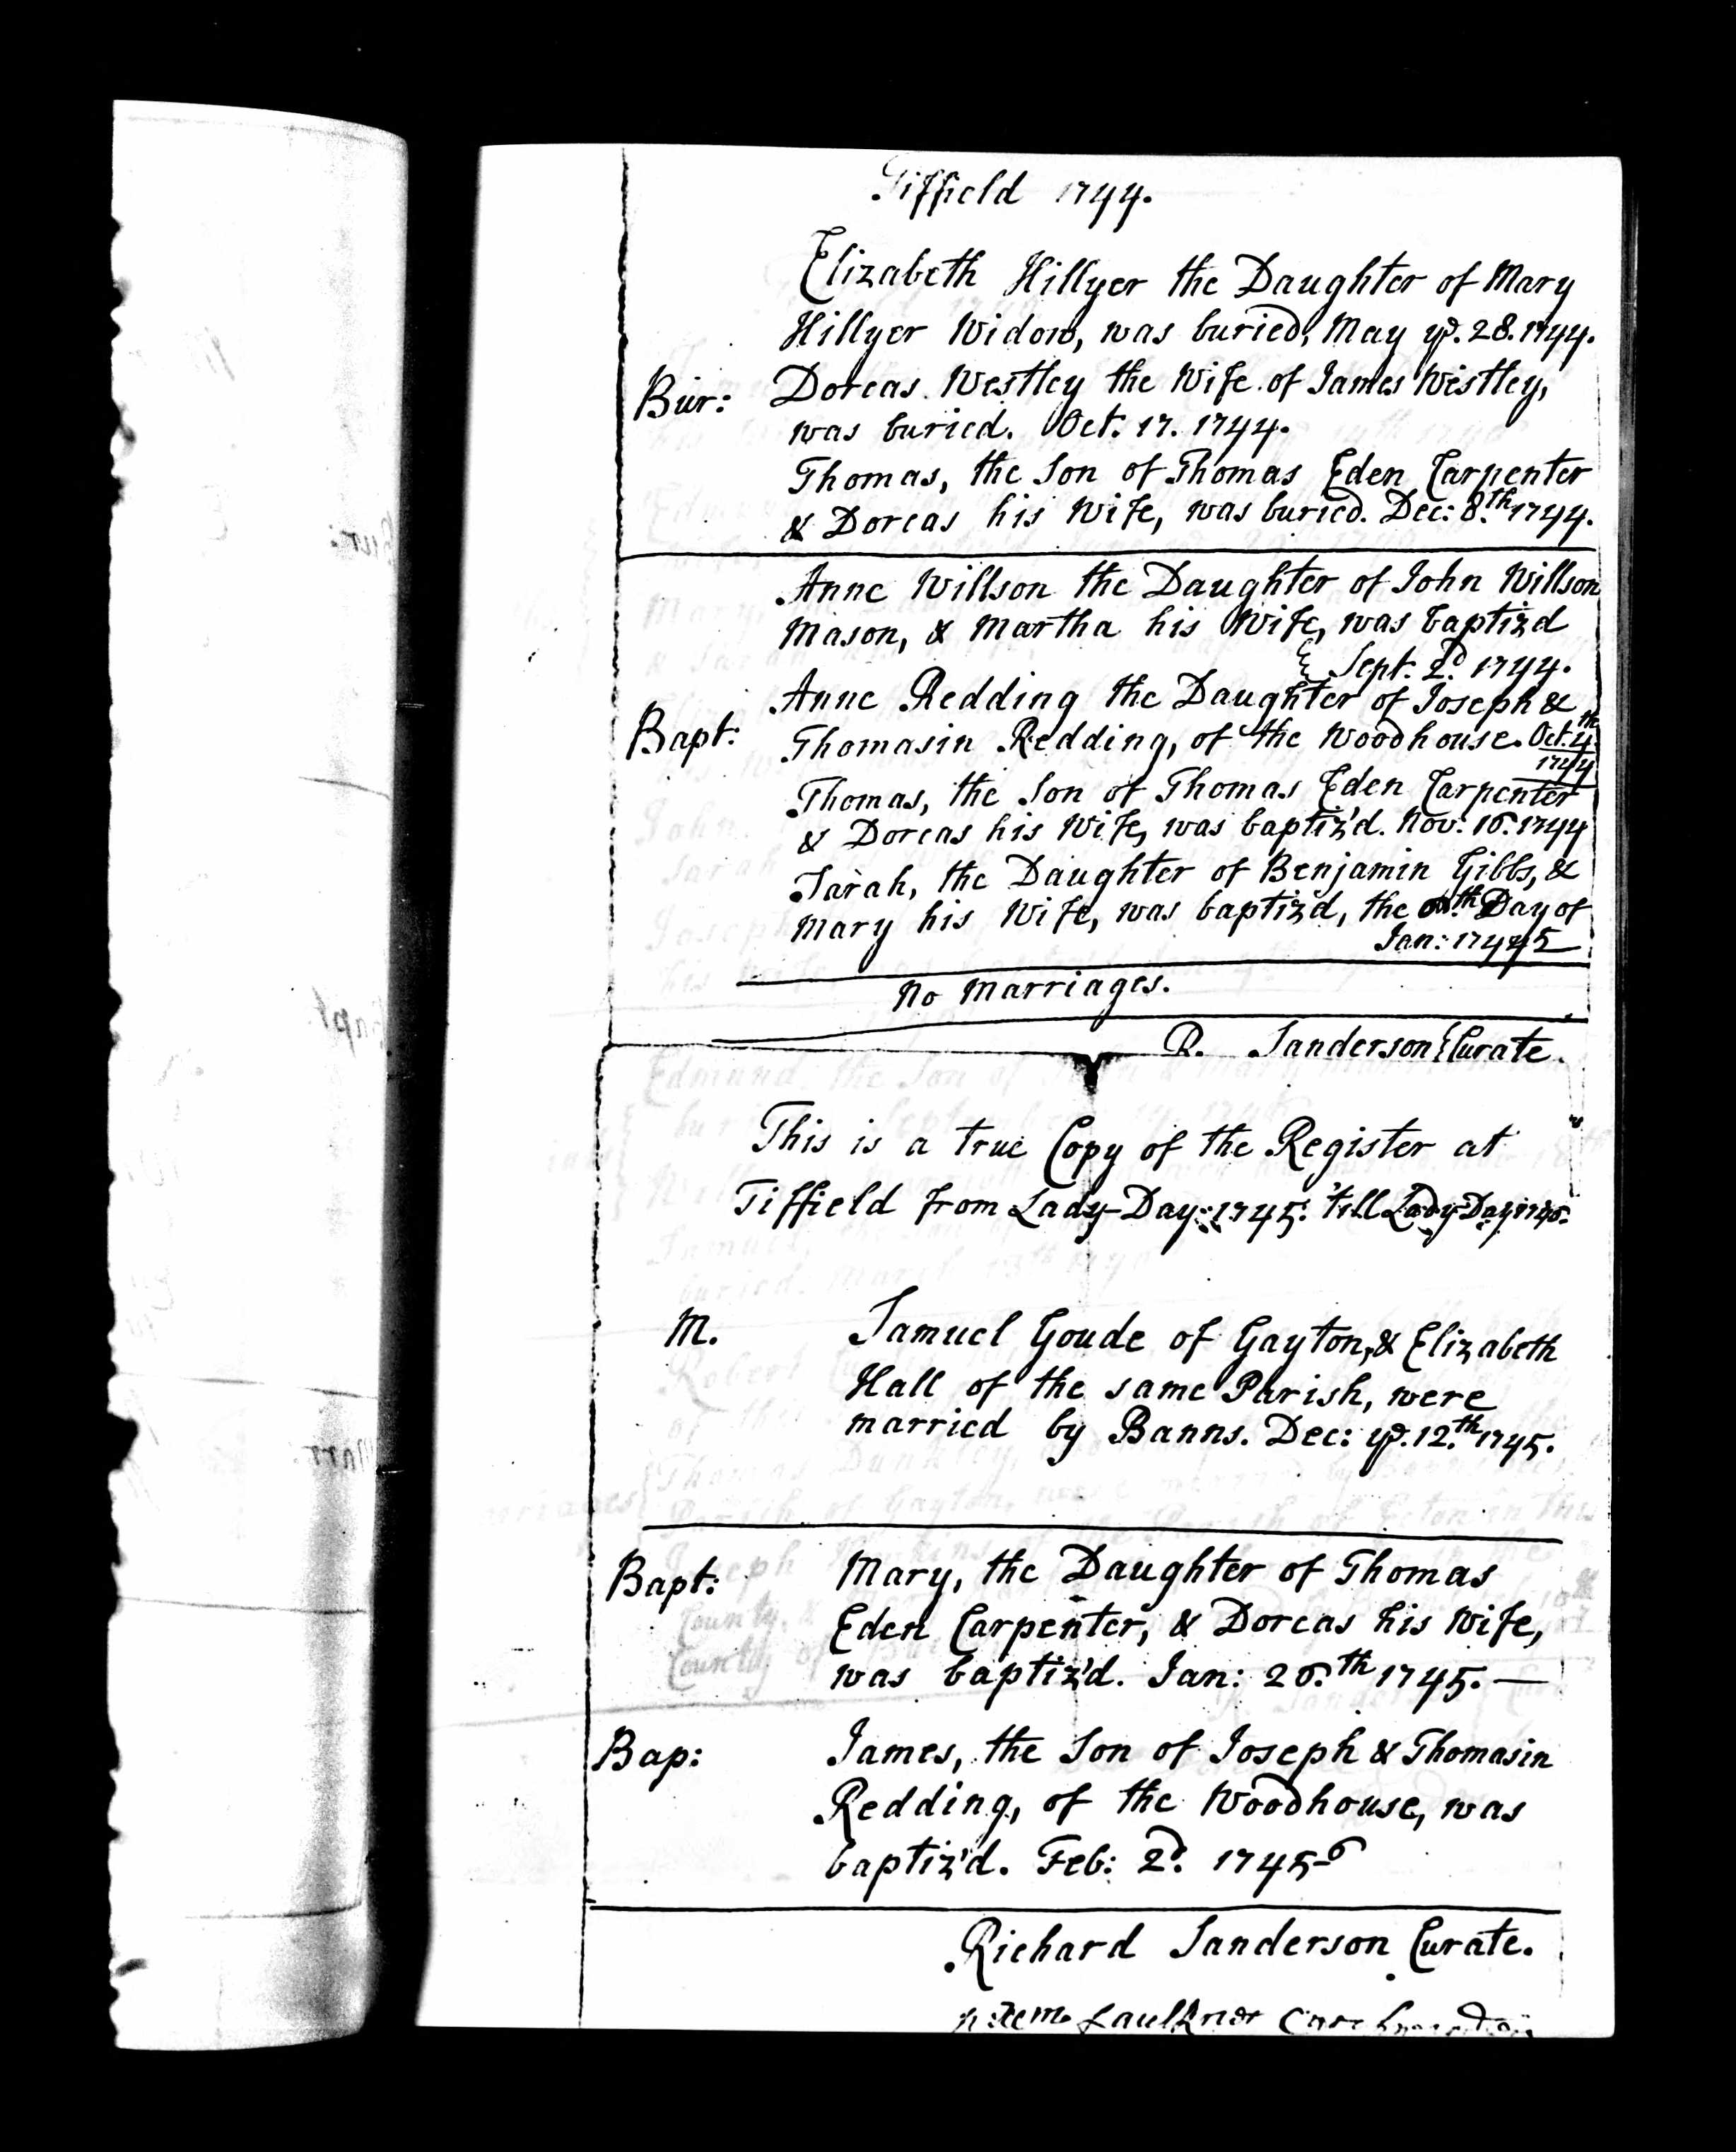 Tiffield 1744.
Elizabeth Hillyer the Daughter of Mary
Hillyer Widow, was buried, May ye. 28. 1744.
Bur: Dorcas Westley the Wife of James Westley,
was buried. Oct. 17. 1744.
Thomas, the Son of Thomas Eden Carpenter
& Dorcas his Wife, was buried. Dec: 8.th 1744.
Anne Willson the Daughter of John Willson
Mason, & Martha his Wife, was baptizd
Sept. 2d. 1744.
Anne Redding the Daughter of Joseph &
Bapt: Thomasin Redding, of the Woodhouse. Oct. 4th.
1744
Thomas, the Son of Thomas Eden Carpenter
& Dorcas his Wife, was baptiz'd. Nov: 16. 1744
Sarah, the Daughter of Benjamin Gibbs, &
Mary his Wife, was baptiz'd, the Day of
Jan: 17445
No Marriages.
R. Sanderson Curate.
This is a true Copy of the Register at
Tiffield from Lady-Day: 1745: 'till Lady-Day 1746.
M. Samuel Goude of Gayton, & Elizabeth
Hall of the same Parish, were
married by Banns. Dec: ye. 12.th 1745.
Bapt: Mary, the Daughter of Thomas
Eden Carpenter, & Dorcas his Wife,
was baptiz'd. Jan: 26.th 1745.—
Bap: James, the Son of Joseph & Thomasin
Redding, of the Woodhouse, was
baptiz'd. Feb: 2d. 1745-6
Richard Sanderson Curate.
Faulkner